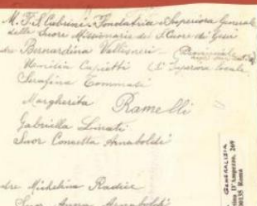 M. F. S. Cabrini - Fondatrice e Superiora Generale
delle Suore Missionarie del S. Cuore di Gesù
dre Bernardina Vallisneri - (Provinciale
Umilia Capietti (Superiora locale
Serafina Tommasi
Margherita Ramelli
Gabriella Linati
Suor Concetta Arnaboldi
dre Michelina Radice
Suor Arnaboldi
GENERALIZIA
269
00135 Roma